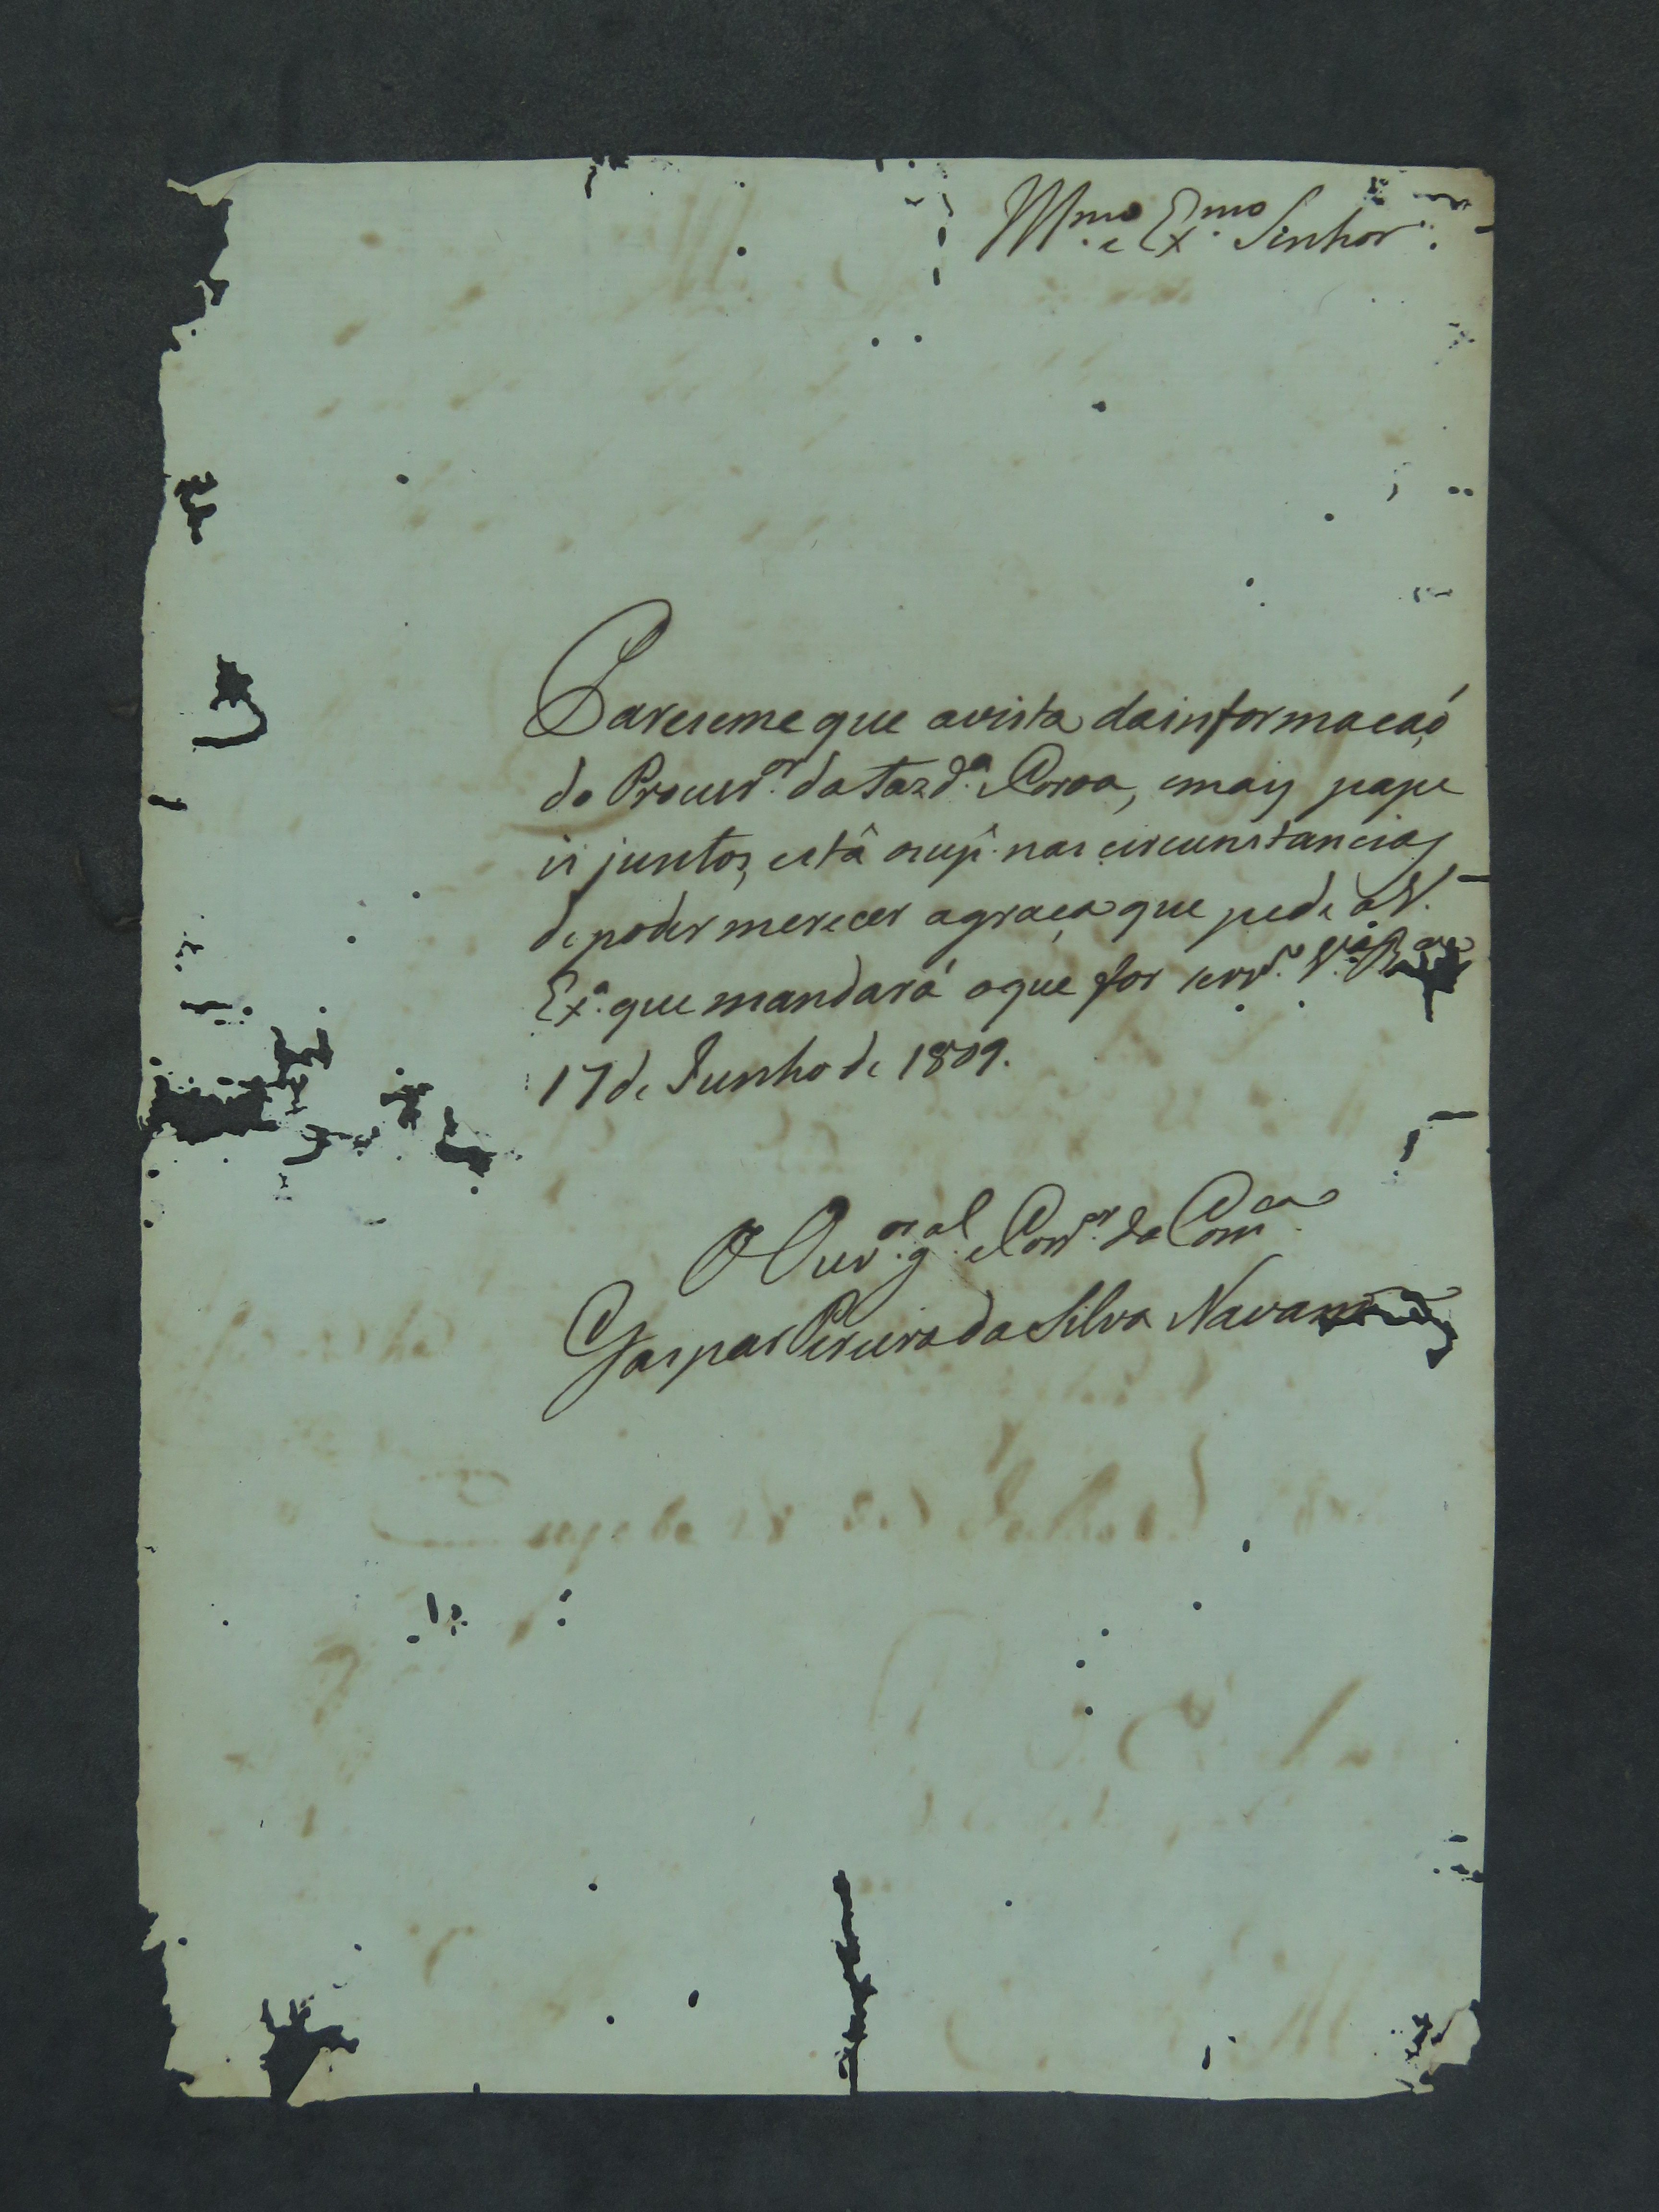 Illmo. e Exmo. Senhor.
Pareceme que avista dainformação
do Procuror. da Fazda. e Coroa, emais pape
is juntos, está osupe. nas circunstancias
de poder merecer agraça que pede a V.
Exa. que mandará oque for servo. Va. Ba
17 de Junho de 1809.
O Ouvor. gal. e Corror. da Comca.
Gaspar Pereira da Silva Navarro
Cuyabá de Julho de